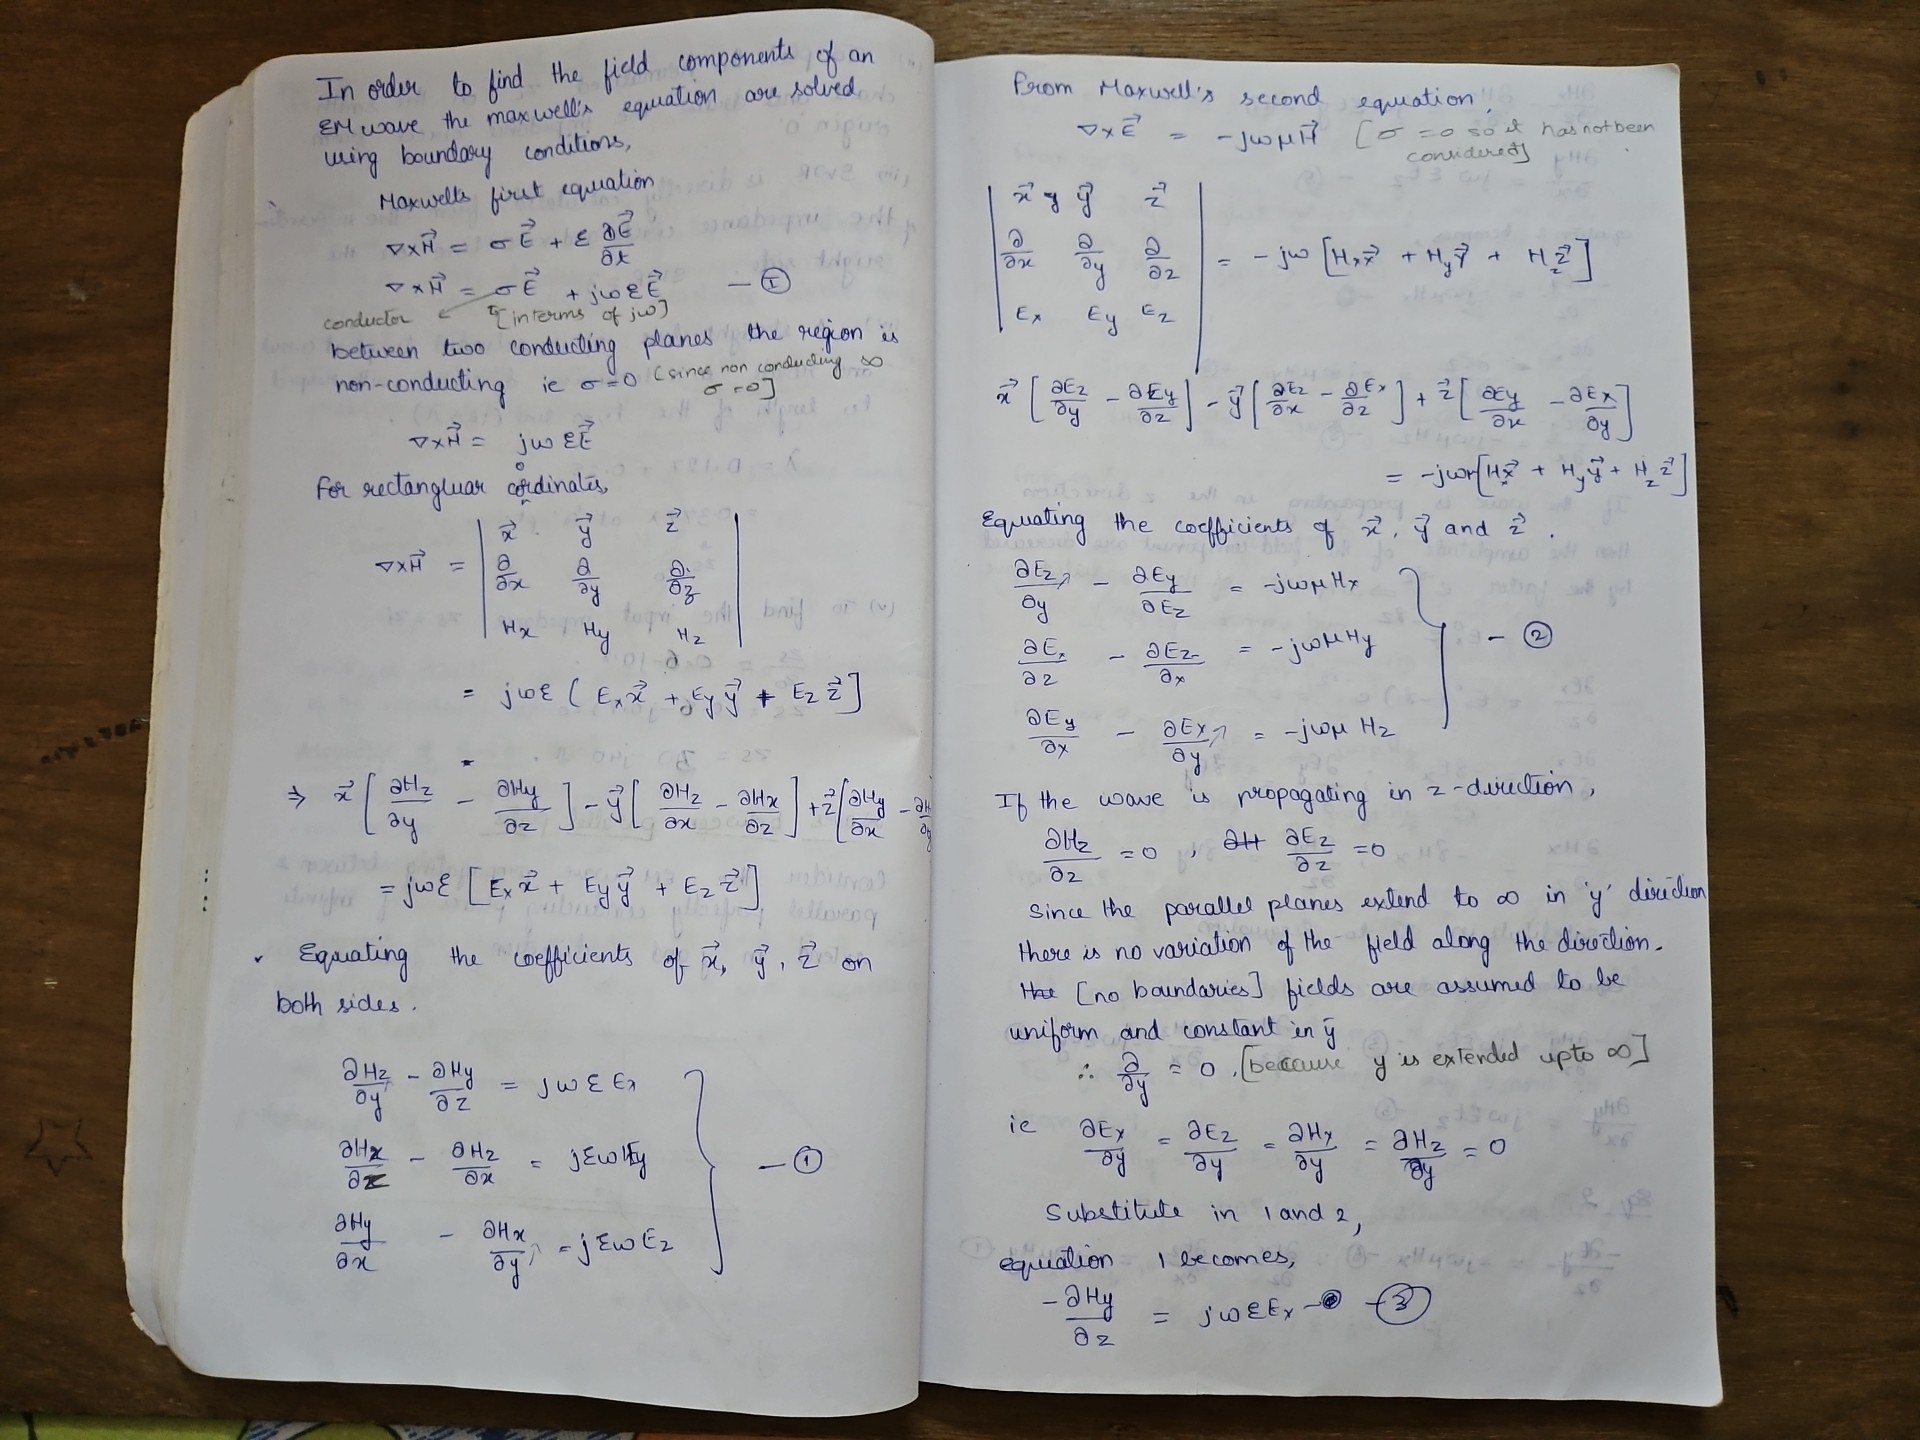 In order to find the field components of an
EM wave the maxwell's equation are solved
using boundary conditions,
Maxwells first equation
∇×H⃗ = σE⃗ + ε ∂E⃗/∂t
∇×H⃗ = σE⃗ + jωεE⃗ — ①
conductor ← [interms of jω]
between two conducting planes the region is
non-conducting ie σ=0 (since non conducting so
σ=0]
∇×H⃗ = jωεE⃗
For rectangluar cordinates,
x⃗ y⃗ z⃗
∇×H⃗ = ∂/∂x ∂/∂y ∂/∂z
Hx Hy Hz
= jωε ( Ex x⃗ + Ey y⃗ + Ez z⃗ ]
⇒ x⃗ [ ∂Hz/∂y - ∂Hy/∂z ] - y⃗ [ ∂Hz/∂x - ∂Hx/∂z ] + z⃗ [ ∂Hy/∂x - ∂H
= jωε [ Ex x⃗ + Ey y⃗ + Ez z⃗ ]
Equating the coefficients of x⃗, y⃗, z⃗ on
both sides.
∂Hz/∂y - ∂Hy/∂z = jωεEx
∂Hx/∂z - ∂Hz/∂x = jεωEy — ①
∂Hy/∂x - ∂Hx/∂y = jεωEz
From Maxwell's second equation,
∇×E⃗ = -jωμH⃗ [σ=0 so it has not been
considered]
x⃗ y⃗ z⃗
∂/∂x ∂/∂y ∂/∂z = -jω [Hx x⃗ + Hy y⃗ + Hz z⃗]
Ex Ey Ez
x⃗ [ ∂Ez/∂y - ∂Ey/∂z ] - y⃗ [ ∂Ez/∂x - ∂Ex/∂z ] + z⃗ [ ∂Ey/∂x - ∂Ex/∂y ]
= -jωμ[Hx x⃗ + Hy y⃗ + Hz z⃗]
Equating the coefficients of x⃗, y⃗ and z⃗.
∂Ez/∂y - ∂Ey/∂Ez = -jωμHx
∂Ex/∂z - ∂Ez/∂x = -jωμHy — ②
∂Ey/∂x - ∂Ex/∂y = -jωμ Hz
If the wave is propagating in z-direction,
∂Hz/∂z = 0 , ∂H ∂Ez/∂z = 0
since the parallel planes extend to ∞ in 'y' direction
there is no variation of the field along the direction.
the [no boundaries] fields are assumed to be
uniform and constant in y⃗
∴ ∂/∂y = 0. [because y is extended upto ∞]
ie ∂Ex/∂y = ∂Ez/∂y = ∂Hx/∂y = ∂Hz/∂y = 0
Substitute in 1 and 2,
equation 1 becomes,
-∂Hy/∂z = jωεEx — ③